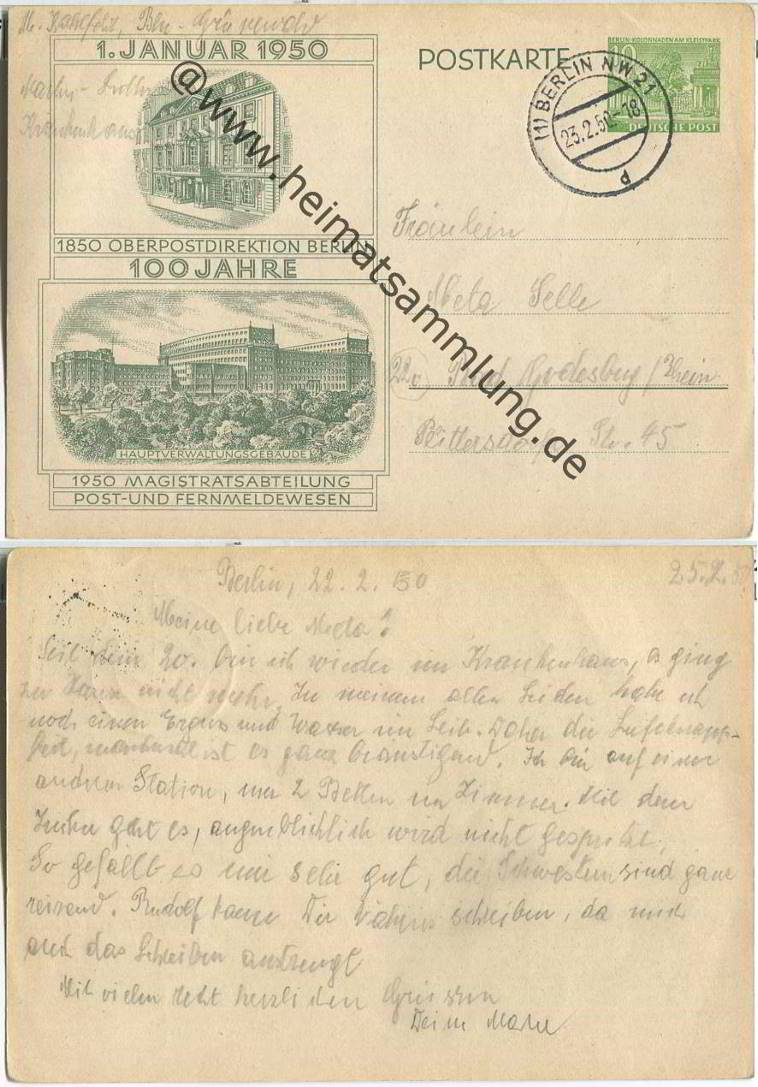 Bln-Grunewald
1. JANUAR 1950
Martin-Luther
Krankenhaus
1850 OBERPOSTDIREKTION BERLIN
100 JAHRE
HAUPTVERWALTUNGSGEBÄUDE
1950 MAGISTRATSABTEILUNG
POST-UND FERNMELDEWESEN
POSTKARTE
BERLIN-KOLONNADEN AM KLEISTPARK
10
DEUTSCHE POST
(1) BERLIN NW 21
23.2.50-18
d
@www.heimatsammlung.de
Fräulein
Meta Selle
22c Bad Godesberg/Rhein
Str. 45
Berlin, 22. 2. 50
25.2.
Meine liebe Meta!
Seit dem 20. bin ich wieder im Krankenhaus, es ging
zu Hause nicht mehr. Zu meinem alten Leiden habe ich
noch einen Erguss und Wasser im Leib. Daher die
ist es ganz beängstigend. Ich bin auf einer
anderen Station, nur 2 Betten im Zimmer. Mit dem
Zucker geht es, augenblicklich wird nicht gespritzt.
So gefällt es mir sehr gut, die Schwestern sind ganz
reizend. Rudolf kann Dir schreiben, da mich
auch das Schreiben anstrengt
Mit vielen herzlichen Grüssen
Deine